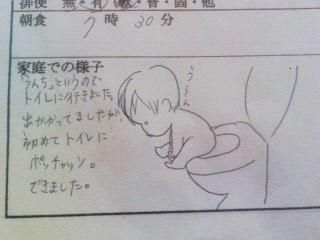 排便 無・有(軟・普・固・他
朝食 7時30分
家庭での様子
「うんち」というので
トイレに行きました。
出かかってましたが
初めてトイレに
ポッチャン。
できました。
うーん